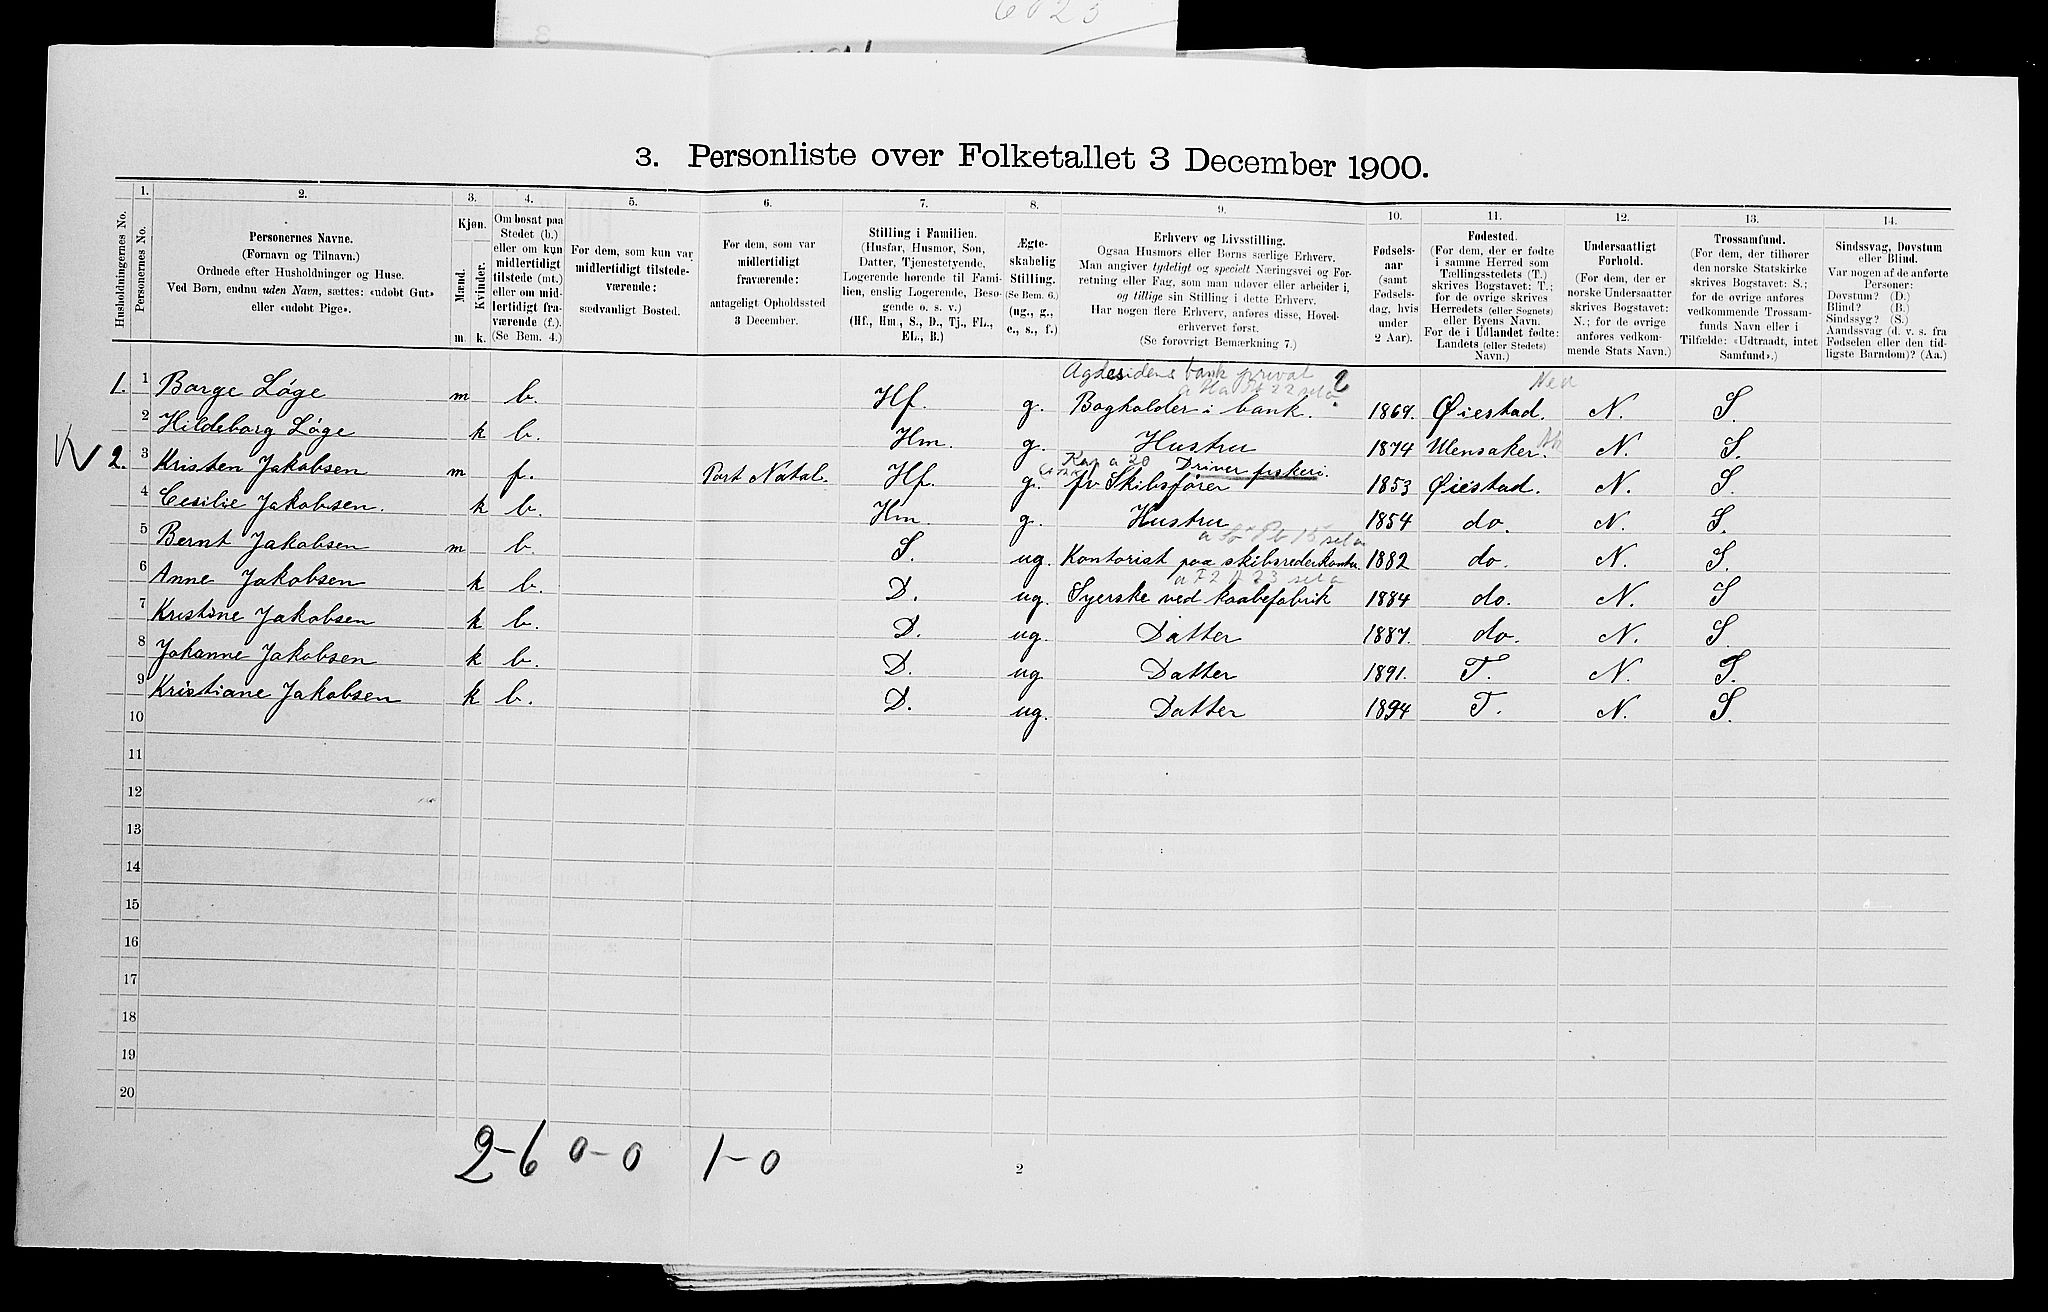 6023
3. Personliste over Folketallet 3 December 1900.
1. 2. 3. 4. 5. 6. 7. 8. 9. 10. 11. 12. 13. 14.
Husholdningernes No.
Personernes No.
Personernes Navne.
(Fornavn og Tilnavn.)
Ordnede efter Husholdninger og Huse.
Ved Børn, endnu uden Navn, sættes: «udøbt Gut»
eller «udøbt Pige».
Kjøn.
Mænd.
Kvinder.
m. k.
Om bosat paa
Stedet (b.)
eller om kun
midlertidigt
tilstede (mt.)
eller om mid-
lertidigt fra-
værende (f.).
(Se Bem. 4.)
For dem, som kun var
midlertidigt tilstede-
værende:
sædvanligt Bosted.
For dem, som var
midlertidigt
fraværende:
antageligt Opholdssted
3 December.
Stilling i Familien.
(Husfar, Husmor, Søn,
Datter, Tjenestetyende,
Logerende hørende til Fami-
lien, enslig Logerende, Besø-
gende o. s. v.)
(Hf., Hm., S., D., Tj., FL.,
EL., B.)
Ægte-
skabelig
Stilling.
(Se Bem. 6.)
(ug., g.,
e., s., f.)
Erhverv og Livsstilling.
Ogsaa Husmors eller Børns særlige Erhverv.
Man angiver tydeligt og specielt Næringsvei og For-
retning eller Fag, som man udøver eller arbeider i,
og tillige sin Stilling i dette Erhverv.
Har nogen flere Erhverv, anføres disse, Hoved-
erhvervet først.
(Se forøvrigt Bemærkning 7.)
Fødsels-
aar
(samt
Fødsels-
dag, hvis
under
2 Aar).
Fødested.
(For dem, der er fødte
i samme Herred som
Tællingsstedets (T.)
skrives Bogstavet: T.;
for de øvrige skrives
Herredets (eller Sognets)
eller Byens Navn.
For de i Udlandet fødte:
Landets (eller Stedets)
Navn.)
Undersaatligt
Forhold.
(For dem, der er
norske Undersaatter
skrives Bogstavet:
N.; for de øvrige
anføres vedkom-
mende Stats Navn.)
Trossamfund.
(For dem, der tilhører
den norske Statskirke
skrives Bogstavet: S.;
for de øvrige anføres
vedkommende Trossam-
funds Navn eller i
Tilfælde: «Udtraadt, intet
Samfund».)
Sindssvag, Døvstum
eller Blind.
Var nogen af de anførte
Personer:
Døvstum? (D.)
Blind? (B.)
Sindssyg? (S.)
Aandssvag (d. v. s. fra
Fødselen eller den tid-
ligste Barndom)? (Aa.)
Agdesidens bank privat
1. 1 Borge Løge m b. Hf. g. Bogholder i bank. 1869. Øiestad. N. S.
2 Hildeborg Løge k b. Hm. g. Hustru 1874 Ulensaker. N. S.
Driver fiskeri.
2. 3 Kristen Jakobsen m f. Port Natal. Hf. g. fv Skibsfører 1853 Øiestad. N. S.
4 Cecilie Jakobsen. k b. Hm. g. Hustru 1854 do. N. S.
5 Bernt Jakobsen m b. S. ug. Kontorist paa skibsrederkontor 1882 do. N. S.
6 Anne Jakobsen k b. D. ug. Syerske ved kaabefabrik 1884 do. N. S
7 Kristine Jakobsen k b. D. ug. Datter 1887. do. N. S.
8 Johanne Jakobsen k b. D. ug Datter 1891. T. N. S.
9 Kristiane Jakobsen k b. D. ug. Datter 1894 T. N. S.
10
11
12
13
14
15
16
17
18
19
20
2-6 0-0 1-0
2